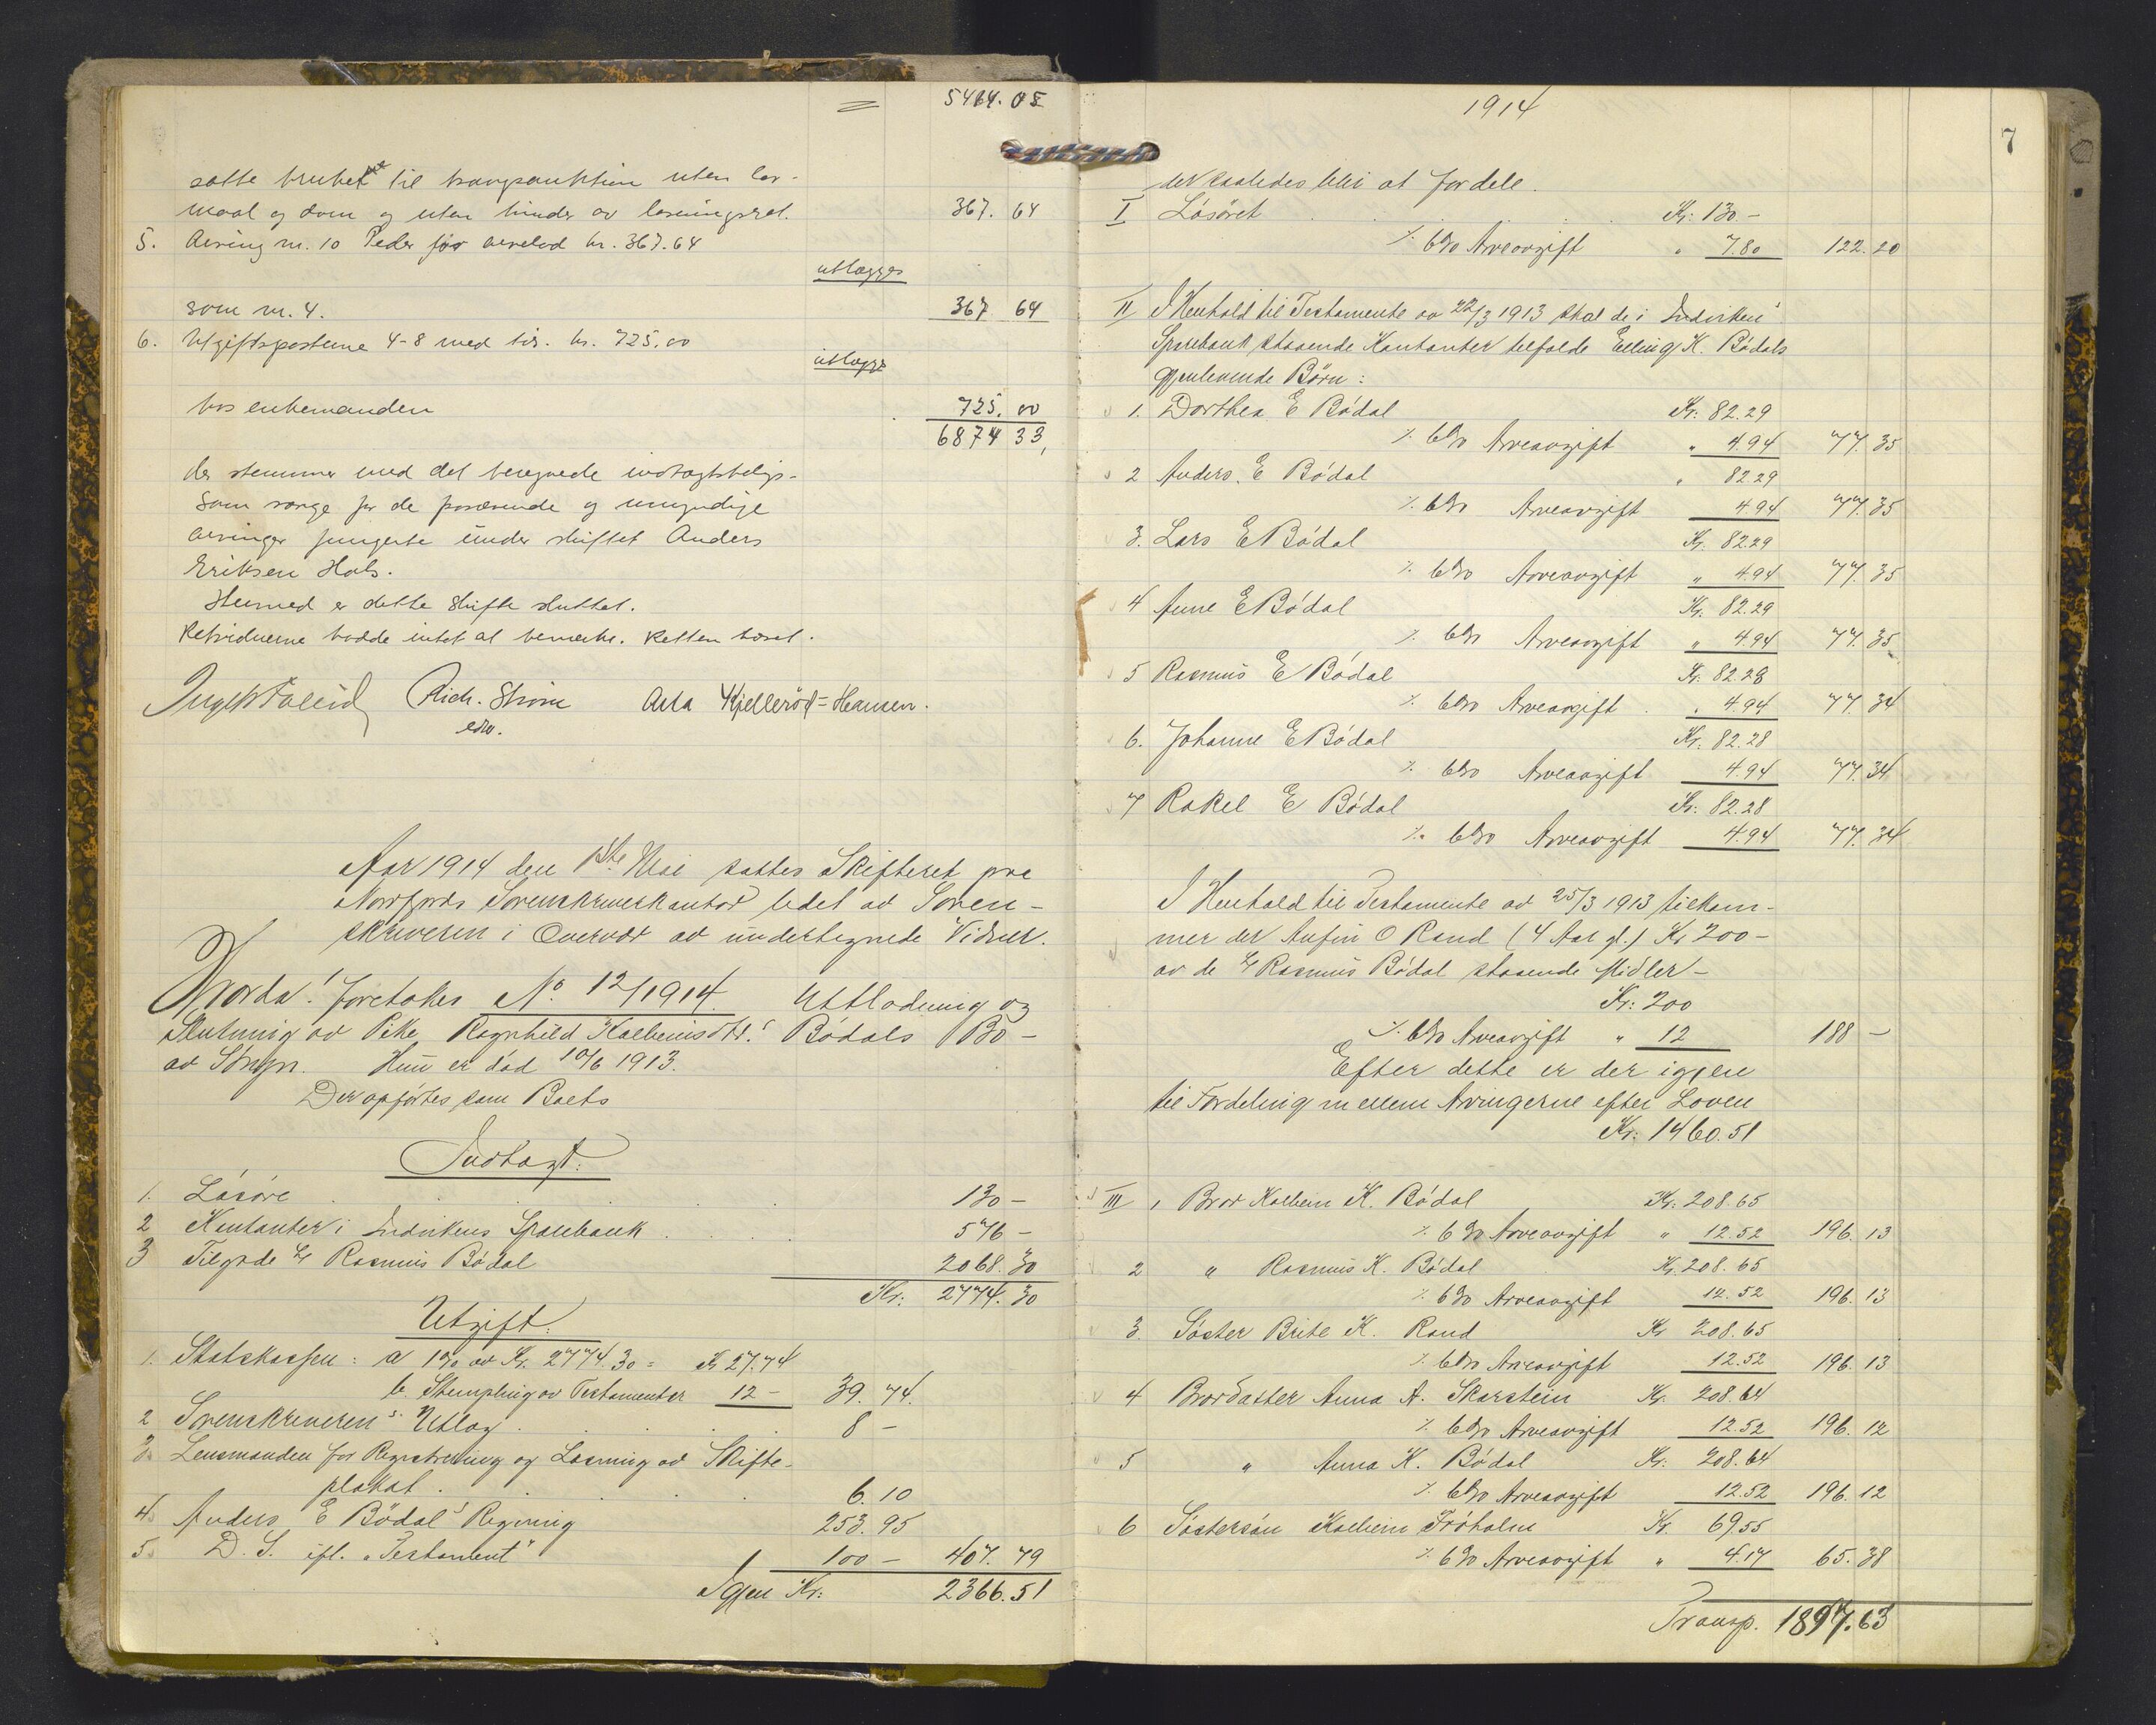 = 5464.05
satte bruket til tvangsauktion uten lov-
maal og dom og uten hinder av løsningsret. 367. 64
5. Arving nr. 10 Peder før arvelod kr. 367.64
utlægges
som nr. 4. 367 64
6. Utgiftsposterne 4-8 med tils. kr. 725,00
utlægges
hos enkemanden 725.00
6874 33
der stemmer med det beregnede indtægtsbeløp.
Som værge for de fraværende og umyndige
arvinger fungerte under skiftet Anders
Eriksen Hals.
Hermed er dette skifte sluttet.
Retsvidnerne hadde intet at bemerke. Retten hævet.
Rich. Strøm Asta Kjellerød-Hansen.
edsv.
Aar 1914 den 1ste Mai sattes Skifteret paa
Nordfjords Sorenskriverkontor ledet av Soren-
skriveren i Overvær av undertegnede Vidner.
Hvorda! foretokes No. 12/1914. Utlodning og
Slutning av Pike Ragnhild Kolbeinsdtr.s Bødals Bo -
av Stryn. Hun er død 10/6 1913.
Der opførtes som Boets
Indtægt:
1. Løsøre . . . . 130 -
2 Kontanter i Indvikens Sparebank . . . . 576 -
3 Tilgode hos Rasmus Bødal 2068.30
Kr: 2774.30
Utgift:
1. Statskassen: a 1% av Kr. 2774.30 = Kr 27.74
b. Stempling av Testamenter 12 - 39. 74.
2 Sorenskriverens Utlæg . . . . 8 -
3. Lensmanden for Registrering og Læsning av Skifte-
plakat . . . . 6.10
4. Anders E Bödal's Regning 253. 95
5. D. S. ifl. "Testament" 100 - 407. 79
Igjen Kr: 2366.51
1914
7
der saaledes blir at fordele.
I Løsøret . . . . Kr: 130. -
÷ 6% Arveavgift " 7.80 122.20
II I Henhold til Testamente av 22/3 1913 skal de i Indviken's
Sparebank staaende Kontanter tilfalde Elling K. Bødals
gjenlevende Børn:
1. Dorthea E Bødal Kr: 82.29
÷ 6% Arveavgift " 4.94 77. 35
2 Anders. E Bødal " 82.29
÷ 6% Arveavgift 4.94 77.35
3. Lars E Bødal Kr. 82.29
÷ 6% Arveavgift " 4.94 77.35
4 Anne E Bødal Kr. 82.29
÷ 6% Arveavgift " 4.94 77.35
5 Rasmus E Bødal Kr. 82.28
÷ 6% Arveavgift " 4.94 77.34
6. Johanne E Bødal Kr. 82.28
÷ 6% Arveavgift 4.94 77.34
7 Rakel E Bødal Kr. 82.28
÷ 6% Arveavgift 4.94 77.34
I Henhold til Testamente av 25/3 1913 tilkom-
mer der Anfin O Rand (4 Aar gl.) Kr 200 -
av de hos Rasmus Bødal staaende Midler -
Kr: 200
÷ 6% Arveavgift " 12 188 -
Efter dette er der igjen
til Fordeling mellem Arvingerne efter Loven
Kr: 1460.51
III 1 Bror Kolbein K. Bødal Kr. 208.65
÷ 6% Arveavgift " 12.52 196. 13
2 " Rasmus K. Bødal Kr. 208. 65
÷ 6% Arveavgift 12.52 196. 13
3 Søster Brite K. Rand Kr 208.65
÷ 6% Arveavgift 12.52 196. 13
4 Brordatter Anna A. Skarstein Kr. 208.64
÷ 6% Arveavgift 12.52 196. 12
5 " Anna K. Bødal Kr: 208.64
÷ 6% Arveavgift 12.52 196. 12
6 Søstersøn Kolbein Frøholm Kr. 69.55
÷ 6% Arveavgift " 4.17 65.38
Transp. 1897.63